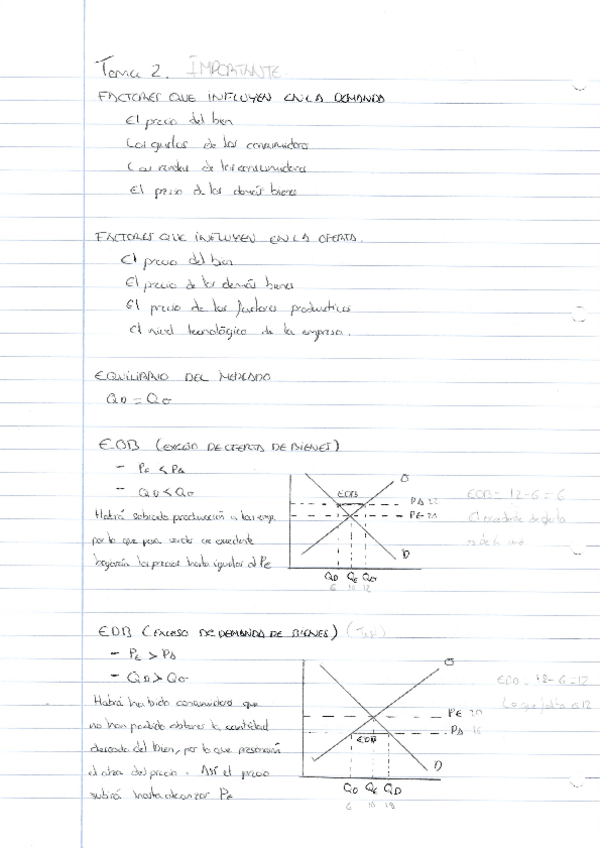 Tema 2. IMPORTANTE
FACTORES QUE INFLUYEN EN LA DEMANDA
El precio del bien
Los gustos de los consumidores
Las rentas de los consumidores
El precio de los demás bienes
FACTORES QUE INFLUYEN EN LA OFERTA.
El precio del bien
El precio de los demás bienes
El precio de los factores productivos
El nivel tecnológico de la empresa.
EQUILIBRIO DEL MERCADO
QD = QO
EOB (EXCESO DE OFERTA DE BIENES)
- PE < PA
- QD < QO
Habrá sobrado producción a las
por lo que para vender ese excedente
bajarán los precios hasta igualar al PE
O
EOB
PA 22
PE 20
D
QD QE QO
6 10 12
EOB = 12-6 = 6
El excedente de oferta
es de 6
EDB (EXCESO DE DEMANDA DE BIENES)
- PE > PA
- QD > QO
Habrá habido consumidores que
no han podido obtener la cantidad
deseada del bien, por lo que presionarán
el alza del precio. Así el precio
subirá hasta alcanzar PE
O
PE 20
PA 16
EDB
D
QO QE QD
6 10 18
EDB = 18-6 = 12
Lo que falta 12